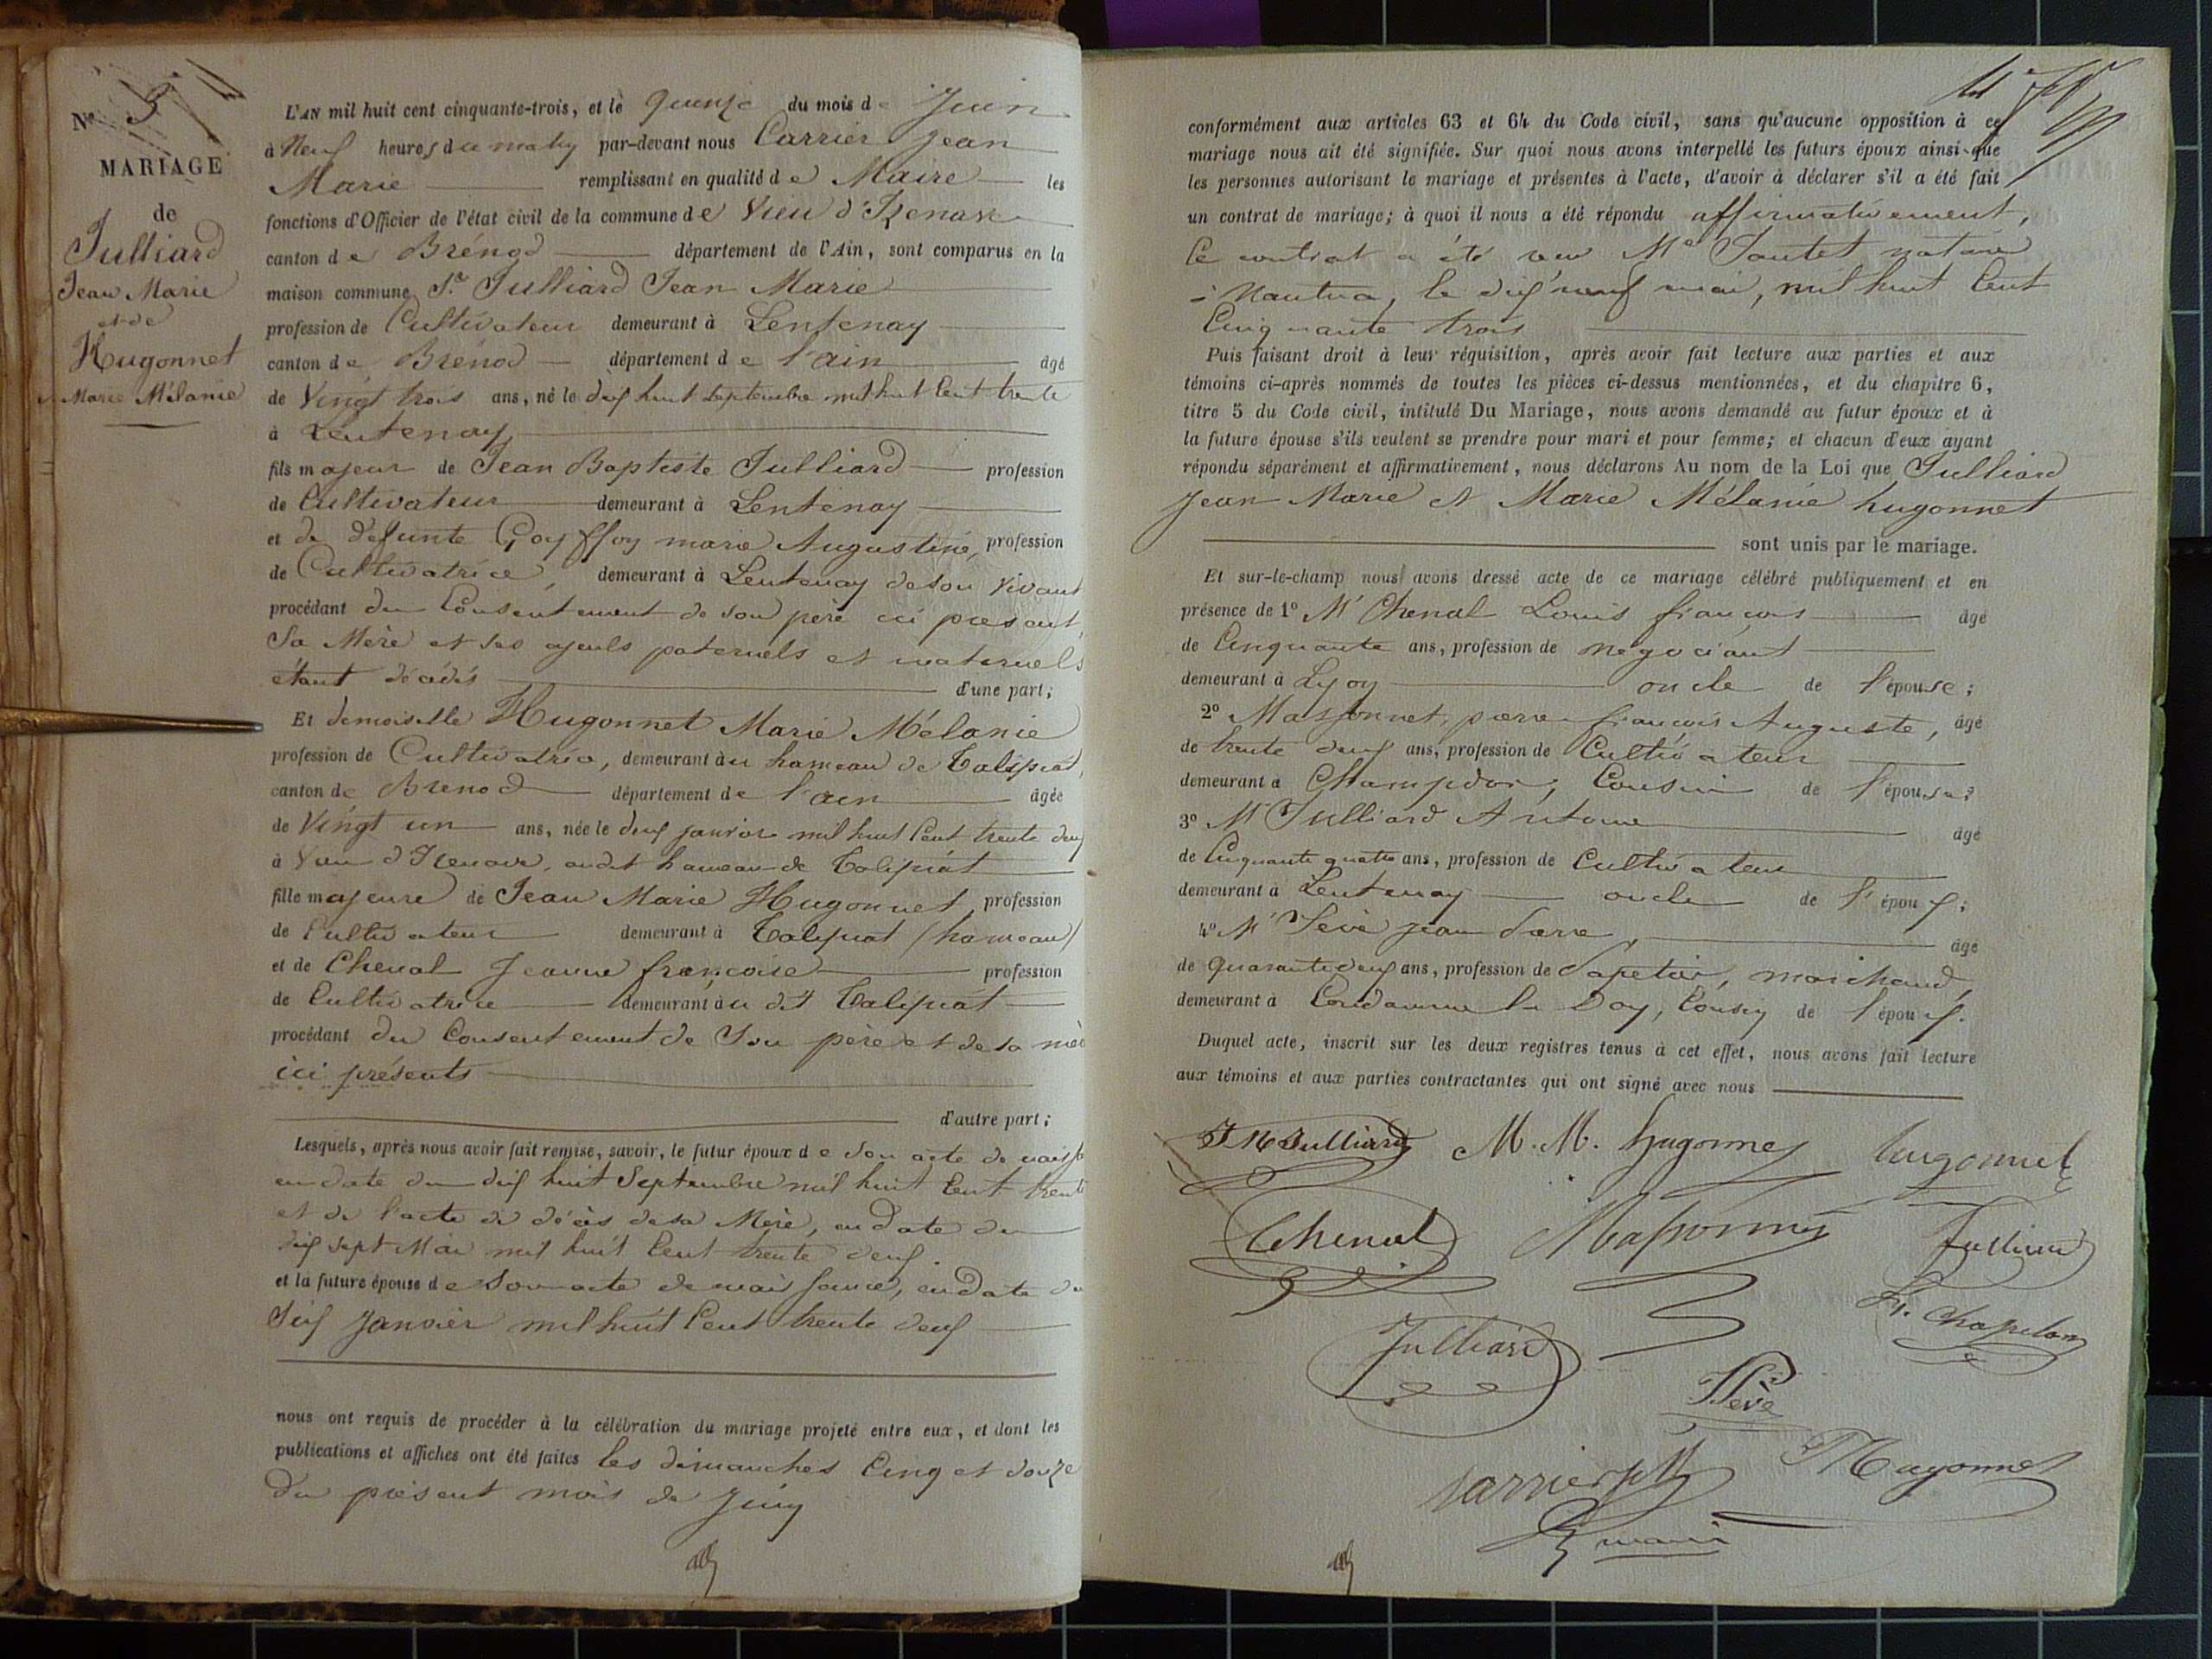 N° 5
MARIAGE
de
Julliard
Jean Marie
et de
Hugonnet
Marie Mélanie
L'AN mil huit cent cinquante-trois, et le quinze du mois de Juin
à Neuf heures du matin par-devant nous Carrier Jean
Marie remplissant en qualité de Maire les
fonctions d'Officier de l'état civil de la commune de Vieu d'Izenave
canton de Brénod département de l'Ain, sont comparus en la
maison commune Sr Julliard Jean Marie
profession de Cultivateur demeurant à Lentenay
canton de Brénod département de l'ain âgé
de Vingt trois ans, né le dix huit Septembre mil huit Cent trente
à Lentenay,
fils majeur de Jean Baptiste Julliard profession
de Cultivateur demeurant à Lentenay
et de défunte Goyffon marie Augustine, profession
de Cultivatrice, demeurant à Lentenay de son vivant
procédant du Consentement de son père ici présent,
Sa Mère et ses ayeuls paternels et maternels
étant décédés d'une part;
Et demoiselle Hugonnet Marie Mélanie
profession de Cultivatrice, demeurant au hameau de Talipiat,
canton de Brenod département de l'ain âgée
de Vingt un ans, née le deux janvier mil huit Cent trente deux
à Vieu d'Izenave, audit hameau de Talipiat
fille majeure de Jean Marie Hugonnet profession
de Cultivateur demeurant à Talipiat (hameau)
et de Chenal Jeanne françoise profession
de Cultivatrice demeurant au dit Talipiat
procédant du Consentement de Son père et de sa mère
ici présents
d'autre part;
Lesquels, après nous avoir fait remise, savoir, le futur époux de Son acte de naissce
en date du dix huit Septembre mil huit Cent trente
et de l'acte de décès de sa Mère, en date du
dix sept Mai mil huit Cent trente deux.
et la future épouse de Son acte de naissance, en date du
janvier mil huit Cent trente deux
nous ont requis de procéder à la célébration du mariage projeté entre eux, et dont les
publications et affiches ont été faites les dimanches Cinq et douze
du présent mois de Juin
conformément aux articles 63 et 64 du Code civil, sans qu'aucune opposition à ce
mariage nous ait été signifiée. Sur quoi nous avons interpellé les futurs époux ainsi que
les personnes autorisant le mariage et présentes à l'acte, d'avoir à déclarer s'il a été fait
un contrat de mariage; à quoi il nous a été répondu affirmativement,
le contrat a été reçu Me Sautet notaire
à Nantua, le dix neuf mai, mil huit Cent
Cinquante trois
Puis faisant droit à leur réquisition, après avoir fait lecture aux parties et aux
témoins ci-après nommés de toutes les pièces ci-dessus mentionnées, et du chapitre 6,
titre 5 du Code civil, intitulé Du Mariage, nous avons demandé au futur époux et à
la future épouse s'ils veulent se prendre pour mari et pour femme; et chacun d'eux ayant
répondu séparément et affirmativement, nous déclarons Au nom de la Loi que Julliard
Jean Marie et Marie Mélanie hugonnet
sont unis par le mariage.
Et sur-le-champ nous avons dressé acte de ce mariage célébré publiquement et en
présence de 1° Mr Chenal Louis françois âgé
de Cinquante ans, profession de négociant
demeurant à Lyon oncle de l'épouse;
2° Massonnet, pierre françois Auguste, âgé
de trente deux ans, profession de Cultivateur
demeurant à Champdor, Cousin de l'épouse;
3° Mr Julliard Antoine âgé
de Cinquante quatre ans, profession de Cultivateur
demeurant à Lentenay oncle de l'époux;
4° Mr Sève jean pierre, âgé
de quarante deux ans, profession de Papetier, marchand,
demeurant à Condamine la Doy, Cousin de l'époux.
Duquel acte, inscrit sur les deux registres tenus à cet effet, nous avons fait lecture
aux témoins et aux parties contractantes qui ont signé avec nous
JM Julliard M. M. hugonnet hugonnet
Chenal Massonnet Julliard
Fr. Chapelon
Julliard
Sève
Carrier JM Hugonnet
maire